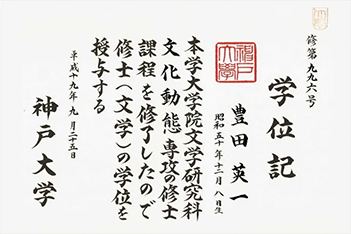 修第九九六号
学位記
豊田英一
昭和五十年十二月八日生
神戸大学
本学大学院文学研究科
文化動態専攻の修士
課程を修了したので
修士(文学)の学位を
授与する
平成十九年九月二十五日
神戸大学